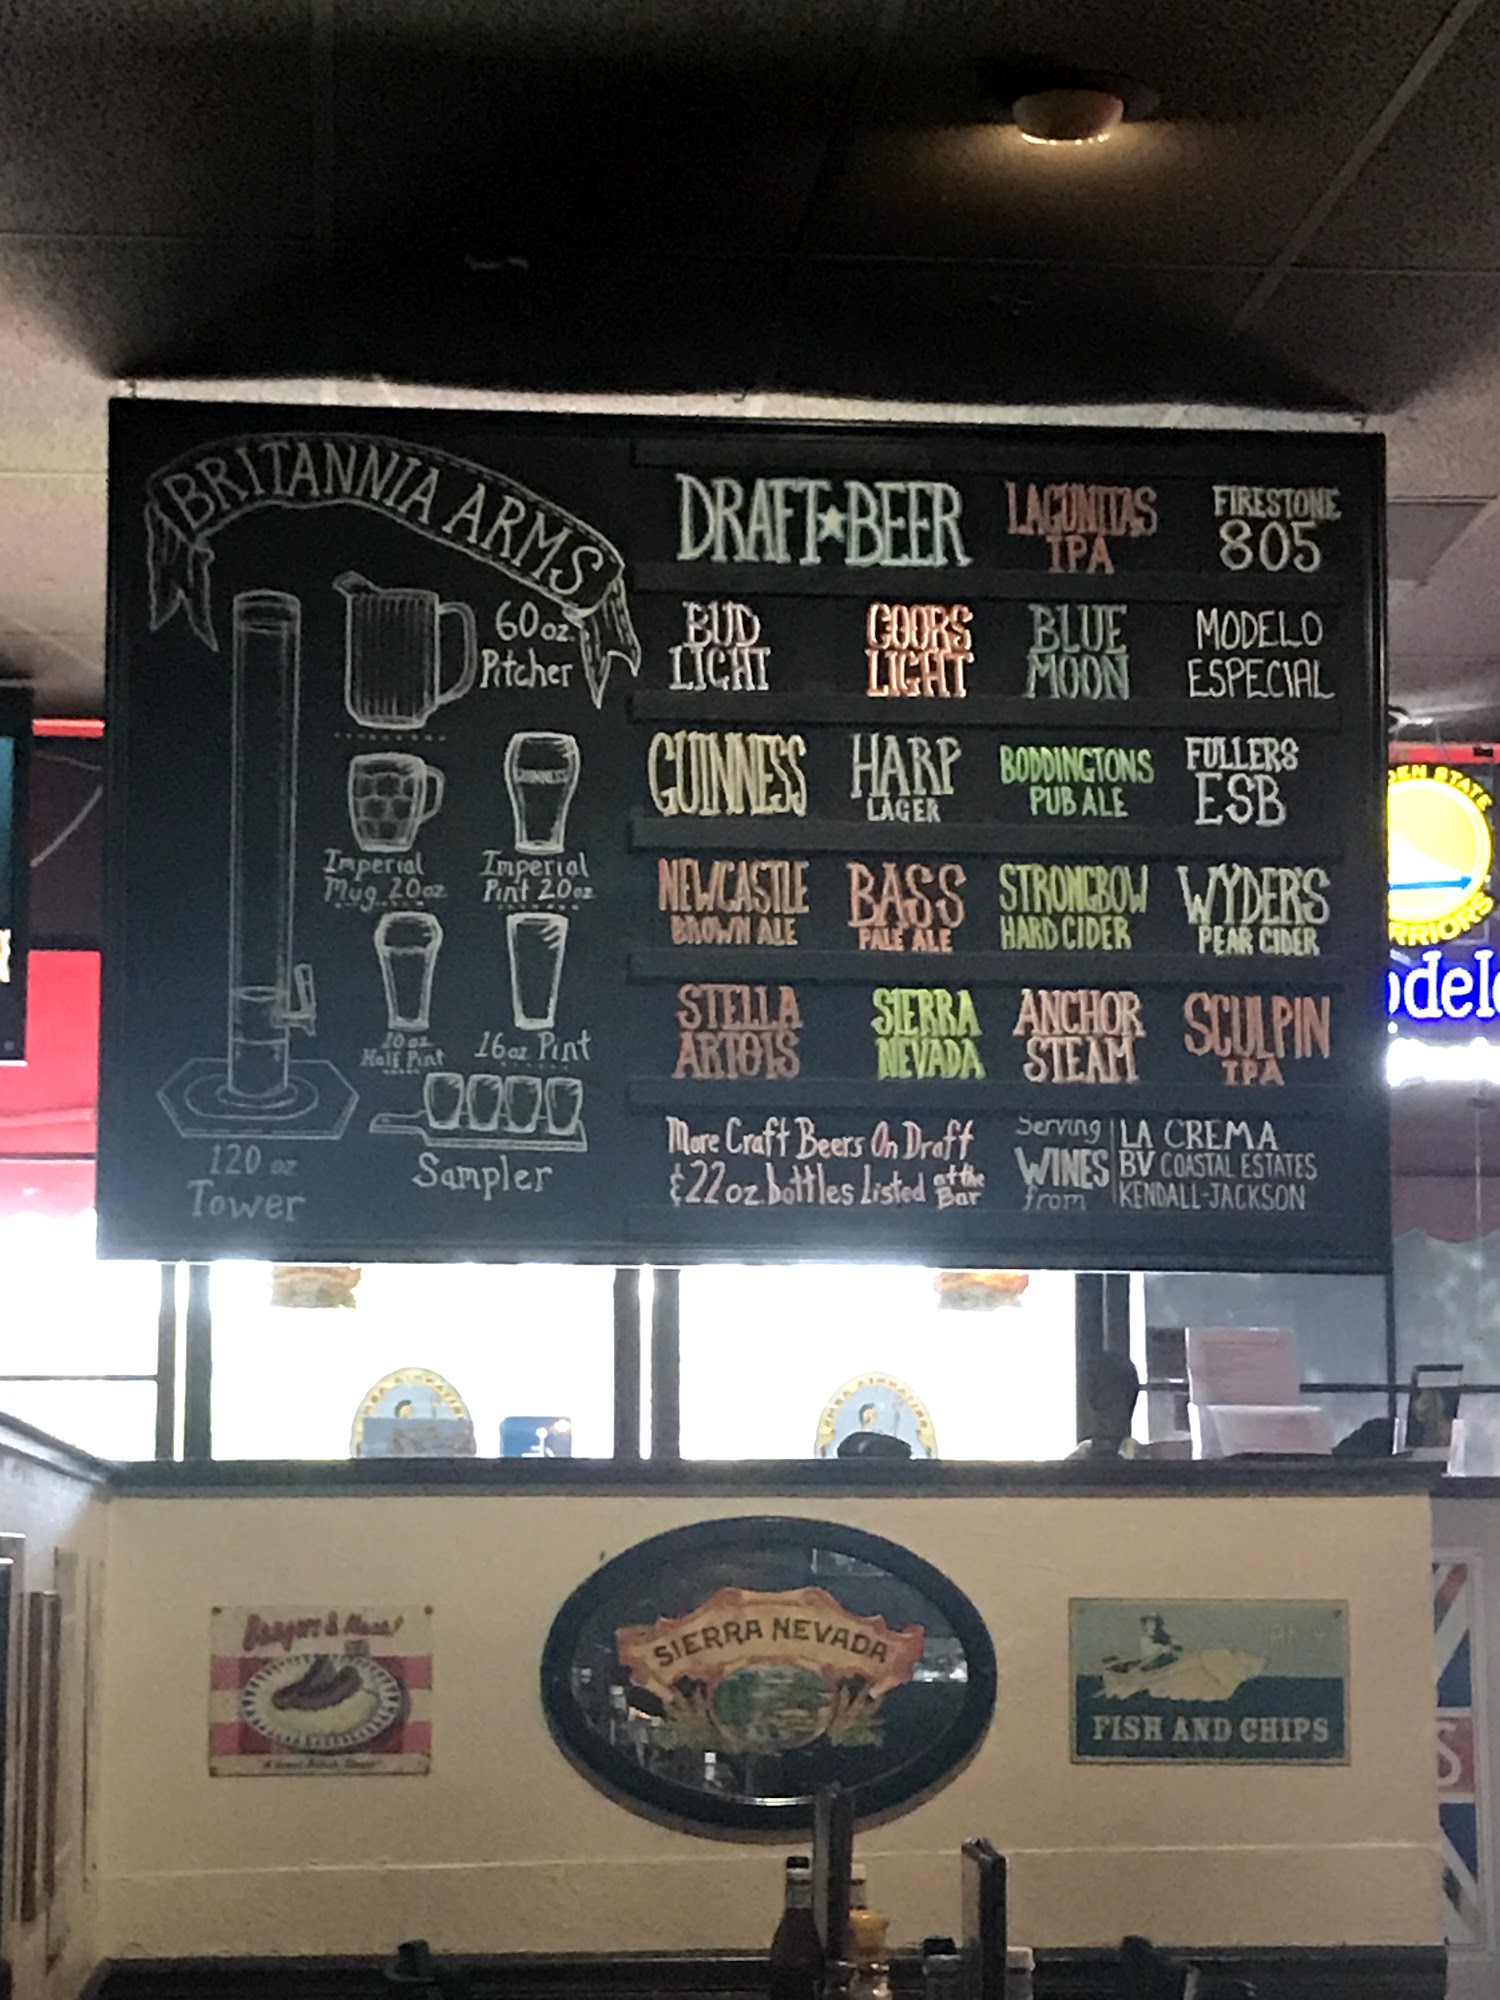 BRITANNIA ARMS
60 oz.
Pitcher
GUINNESS
Imperial
Mug 20oz
Imperial
Pint 20oz
10 oz
Half Pint
16oz Pint
120 oz
Tower
Sampler
DRAFT★BEER
LAGUNITAS
IPA
FIRESTONE
805
BUD
LIGHT
COORS
LIGHT
BLUE
MOON
MODELO
ESPECIAL
GUINNESS
HARP
LAGER
BODDINGTONS
PUB ALE
FULLERS
ESB
NEWCASTLE
BROWN ALE
BASS
PALE ALE
STRONGBOW
HARD CIDER
WYDER'S
PEAR CIDER
STELLA
ARTOIS
SIERRA
NEVADA
ANCHOR
STEAM
SCULPIN
IPA
More Craft Beers On Draft
& 22oz bottles Listed at the Bar
Serving
WINES
from
LA CREMA
BV COASTAL ESTATES
KENDALL-JACKSON
DEN STATE
RRIORS
odelo
Bangers & Mash!
SIERRA NEVADA
FISH AND CHIPS
S